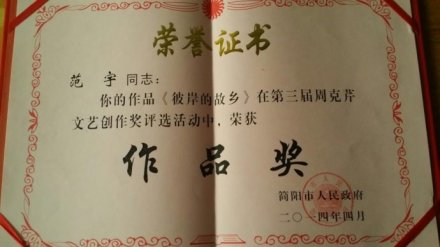 荣誉证书
范宇同志：
你的作品《彼岸的故乡》在第三届周克芹
文艺创作奖评选活动中，荣获
作品奖
简阳市人民政府
二〇一四年四月